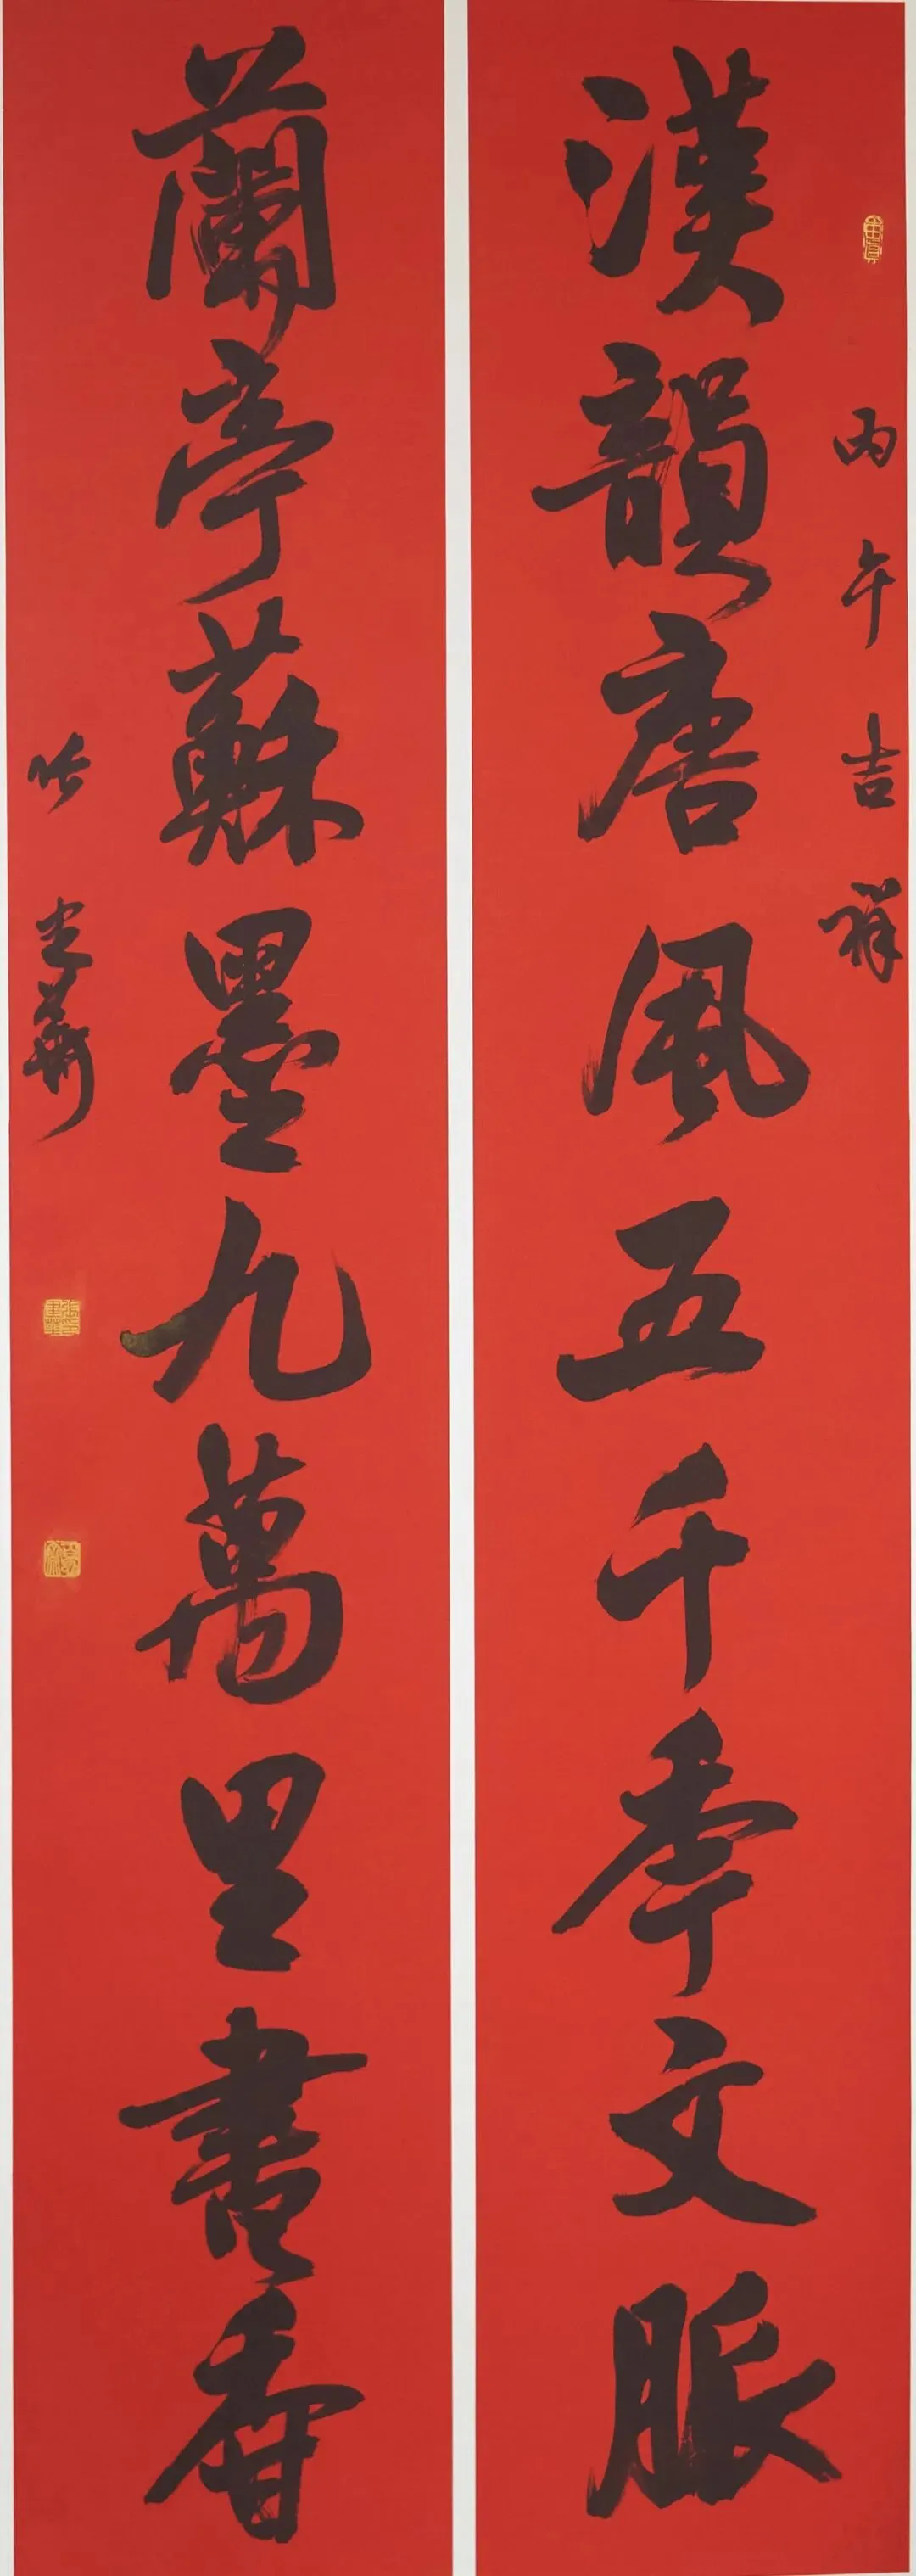 丙午吉祥
漢韻唐風五千秊文脈
蘭亭蘇墨九萬里書香